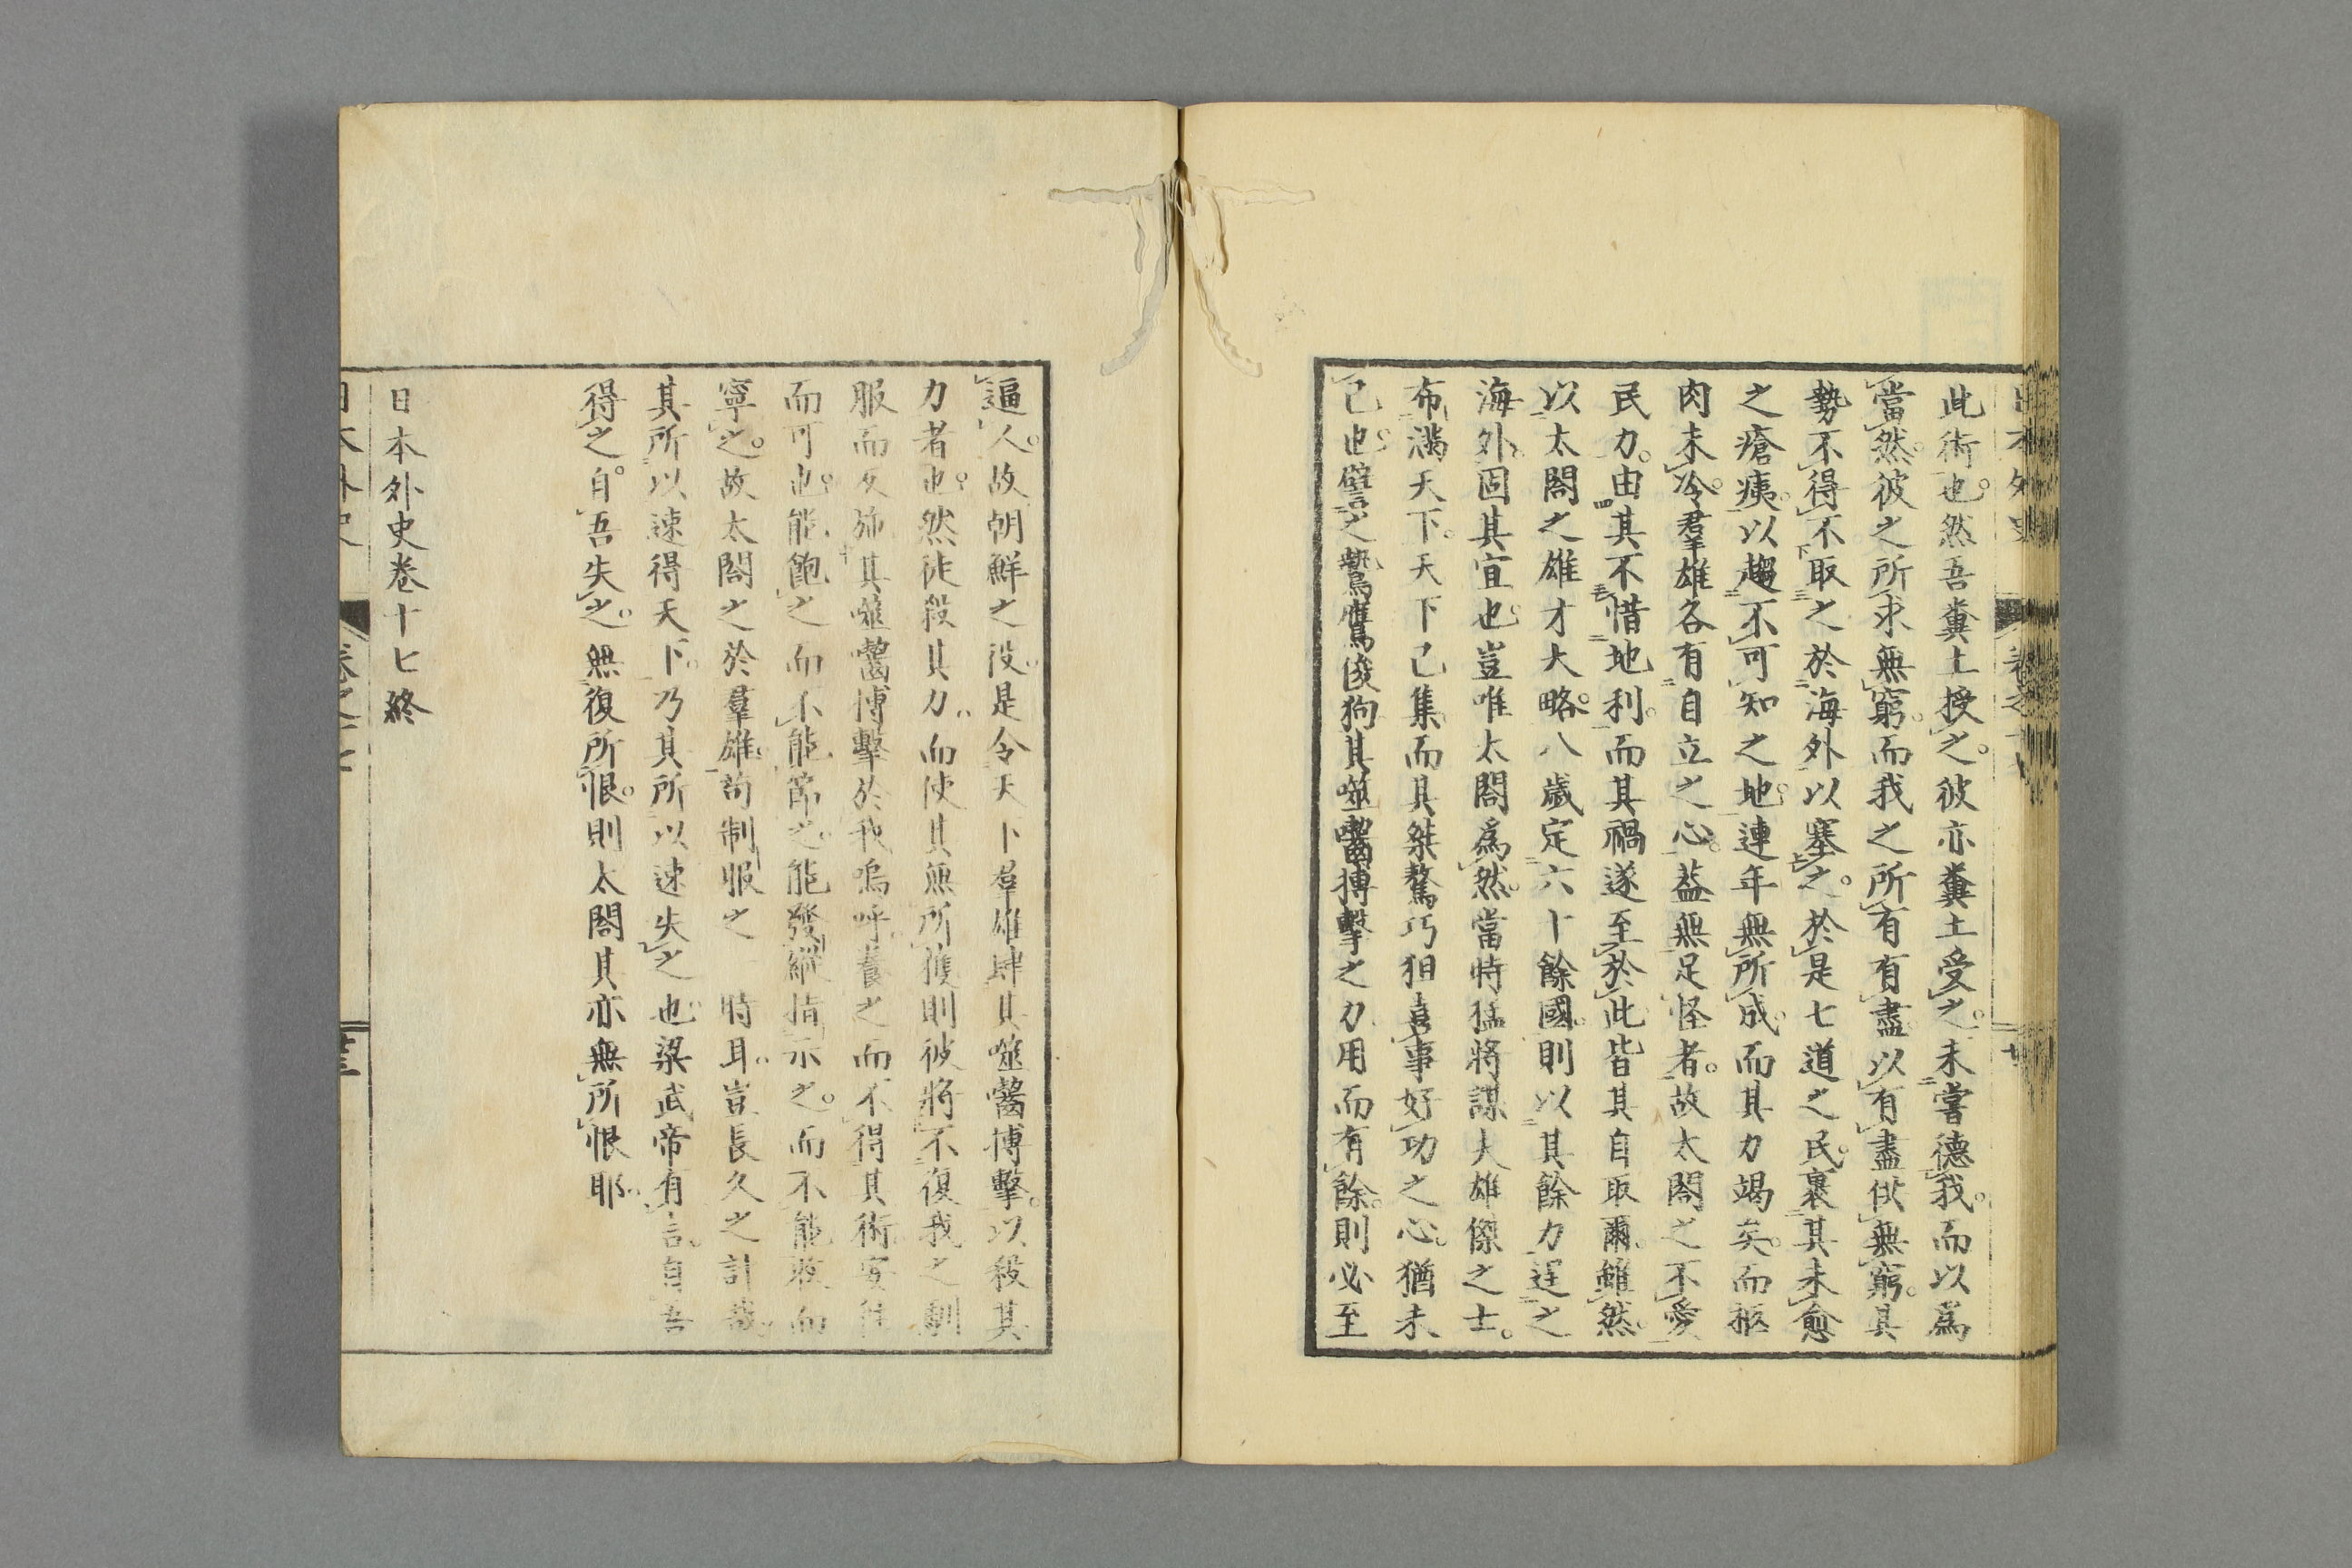 此術也。然吾糞土授之。彼亦糞土受之。未嘗德我。而以爲
當然。彼之所求無窮。而我之所有有盡。以有盡供無窮。其
勢不得不取之於海外以塞之。於是七道之民。裹其未愈
之瘡痍。以趨不可知之地。連年無所成。而其力竭矣。而柩
肉未冷。羣雄各有自立之心。蓋無足怪者。故太閤之不愛
民力。由其不惜地利。而其禍遂至於此。皆其自取爾。雖然。
以太閤之雄才大略。八歲定六十餘國。則以其餘力逞之
海外。固其宜也。豈唯太閤爲然。當時猛將謀夫雄傑之士。
布滿天下。天下已集。而其桀驁巧狙喜事好功之心。猶未
已也。譬之鷙鷹俊狗其噬齧搏擊之力用而有餘。則必至
逼人。故朝鮮之役。是令天下羣雄肆其噬齧搏擊。以殺其
力者也。然徒殺其力。而使其無所獲則彼將不復我之馴
服而反施其噬齧搏擊於我嗚呼。養之而不得其術。安往
而可也。能飽之而不能節之。能發縱指示之。而不能收而
寧之。故太閤之於羣雄。苟制服之一時耳。豈長久之計哉。
其所以速得天下。乃其所以速失之也。梁武帝有言。自吾
得之。自吾失之。無復所恨。則太閤其亦無所恨耶。
日本外史卷十七終